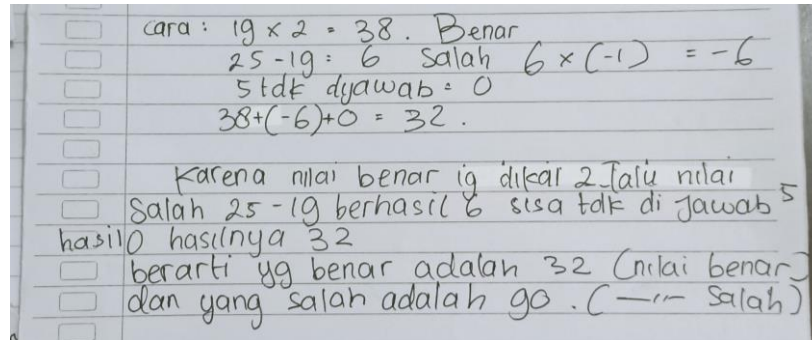 cara : 19 x 2 = 38. Benar
25-19 = 6 Salah 6 x (-1) = -6
5 tdk dyawab = 0
38+(-6)+0 = 32.
Karena nilai benar 19 dikai 2 lalu nilai
Salah 25-19 berhasil 6 sisa tdk di Jawab 5
hasil 0 hasilnya 32
berarti yg benar adalah 32 (nilai benar)
dan yang salah adalah 90. (—"— Salah)